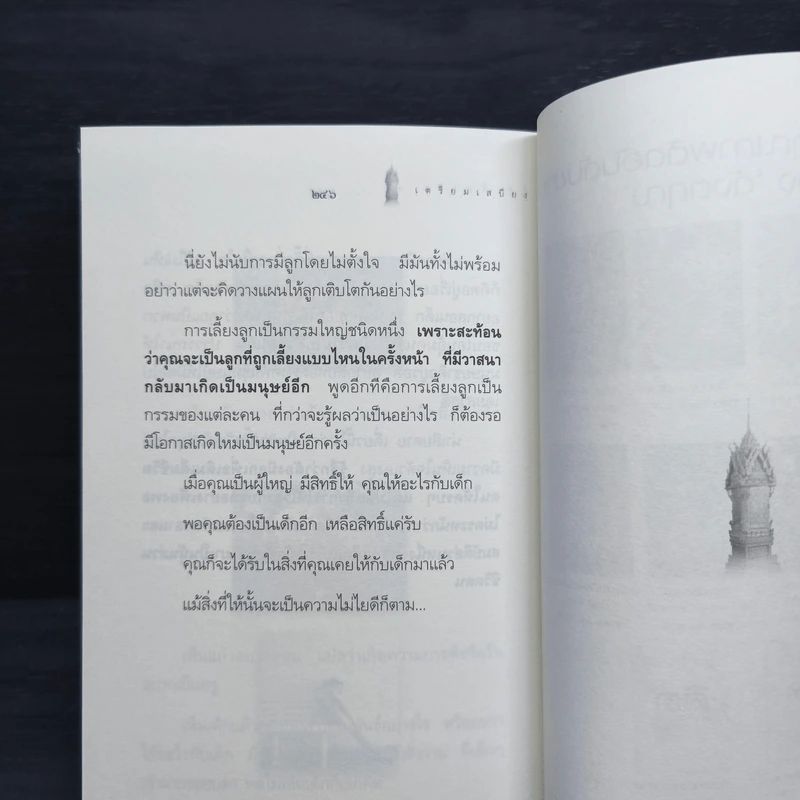 ๒๔๖ เตรียมเสบียง
นี่ยังไม่นับการมีลูกโดยไม่ตั้งใจ มีมันทั้งไม่พร้อม
อย่าว่าแต่จะคิดวางแผนให้ลูกเติบโตกันอย่างไร
การเลี้ยงลูกเป็นกรรมใหญ่ชนิดหนึ่ง เพราะสะท้อน
ว่าคุณจะเป็นลูกที่ถูกเลี้ยงแบบไหนในครั้งหน้า ที่มีวาสนา
กลับมาเกิดเป็นมนุษย์อีก พูดอีกทีคือการเลี้ยงลูกเป็น
กรรมของแต่ละคน ที่กว่าจะรู้ผลว่าเป็นอย่างไร ก็ต้องรอ
มีโอกาสเกิดใหม่เป็นมนุษย์อีกครั้ง
เมื่อคุณเป็นผู้ใหญ่ มีสิทธิ์ให้ คุณให้อะไรกับเด็ก
พอคุณต้องเป็นเด็กอีก เหลือสิทธิ์แค่รับ
คุณก็จะได้รับในสิ่งที่คุณเคยให้กับเด็กมาแล้ว
แม้สิ่งที่ให้นั้นจะเป็นความไม่ไยดีก็ตาม...